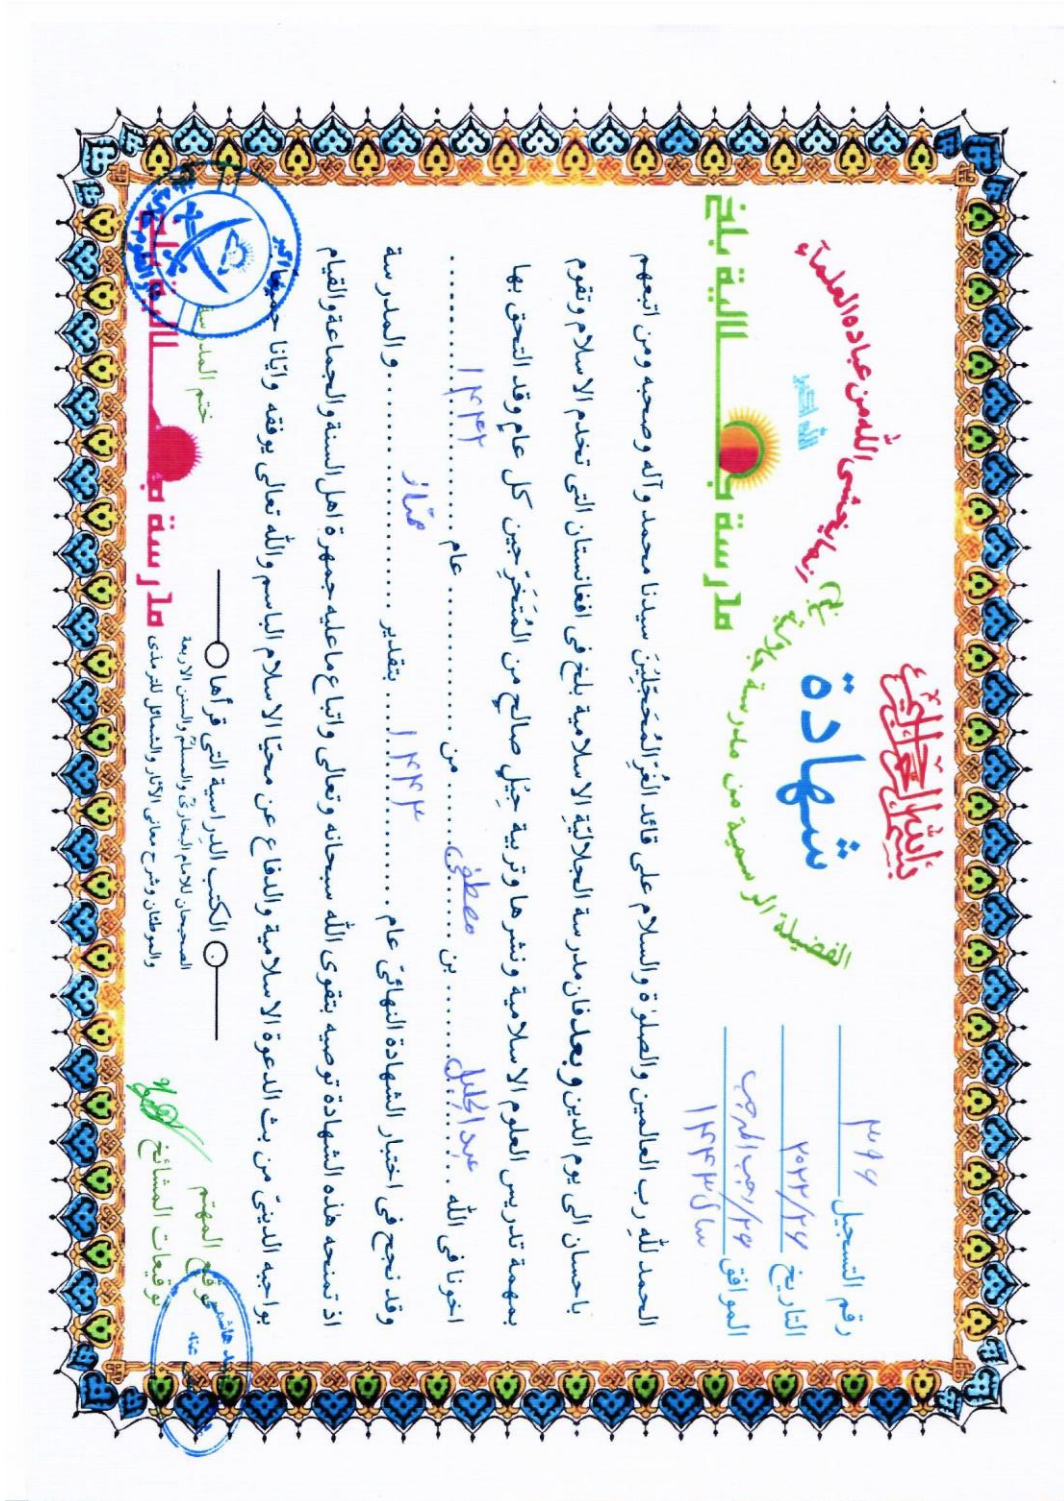 بسم الله الرحمن الرحيم
شهادة
انما يخشى الله من عباده العلمآء
الله اكبر
الفضيلة الرسمية من مدرسة جلالية بلخ
مدرسة جلالية بلخ
رقم التسجيل ٣٩٦
التاريخ ٢٠٢٢/٢/٢٦
الموافق ٢٦/رجب المرجب
سال ١٤٤٣
الحمد لله رب العالمين والصلوٰة والسلام على قائد الغُرِ المُحَجَّلِيْنَ سيدنا محمد وآله وصحبه ومن اتبعهم
باحسان الى يوم الدين وبعد فان مدرسة الجلاليّةِ الاسلامية بلخ فى افغانستان التى تخدم الاسلام وتقوم
بمهمة تدريس العلوم الاسلامية ونشرها وتربية جيْلٍ صالحٍ من المُتَخَرِّجين كل عامٍ وقد التحق بها
اخونا فى الله ........ عبد الجليل ........ بن ........ مصطفى ........ من ................ عام ........ ١٤٤٢ ........
وقد نجح فى اختبار الشهادة النهائىّ عام ........ ١٤٤٣ ........ بتقدير ........ ممتاز ........ والمدرسة
اذ تمنحه هذه الشهادة توصيه بتقوى الله سبحانه وتعالى واتباع ماعليه جمهرة اهل السنة والجماعة والقيام
بواجبه الدينىّ من بث الدعوة الاسلامية والدفاع عن محيّا الاسلام الباسم والله تعالى يوفقه وايّانا جميعًا
موقع المهتم
توقيعات المشائخ
الكتب الدراسية التى قرأها
الصحيحان للامام البخارىّ والمسلمّ والسنن الاربعة
والموطئان وشرح معانى الآثار والشمائل للترمذى
ختم المدرسة
مدرسة جلالية بلخ